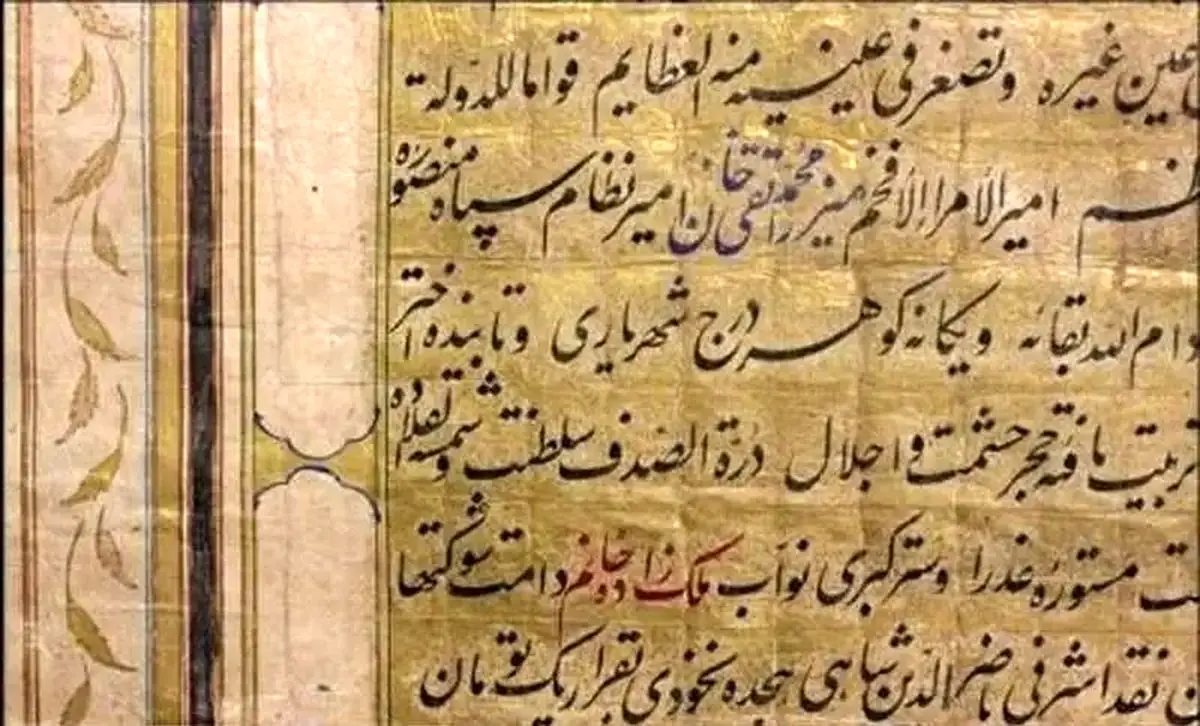 عین غیره وتصغر فی عینیه منه العظایم قواما للدولة
امیر الأمراء الأفخم میرزا محمد تقی خان امیر نظام سپاه منصوره
دام الله بقائه ویکانه کوهر درج شهریاری وتابنده اختر
تربیت یافته حجر حشمت واجلال درة الصدف سلطنت وشمسه القلاده
مستوره عذرا وستر کبری نواب ملک زاده خانم دامت شوکتها
نقد اشرفی ناصر الدین شاهی هجده نخودی بقرار یک تومان